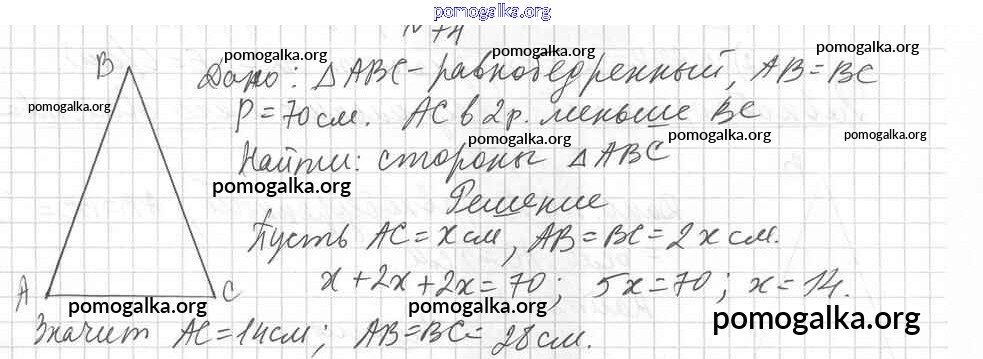 pomogalka.org
№ 74
pomogalka.org pomogalka.org pomogalka.org
B Дано: △ABC - равнобедренный, AB = BC
pomogalka.org
P = 70 см. AC в 2 р. меньше BC
pomogalka.org pomogalka.org pomogalka.org
Найти: стороны △ABC
pomogalka.org
Решение
Пусть AC = x см, AB = BC = 2x см.
x + 2x + 2x = 70; 5x = 70; x = 14.
A C
pomogalka.org pomogalka.org pomogalka.org
Значит AC = 14 см; AB = BC = 28 см.